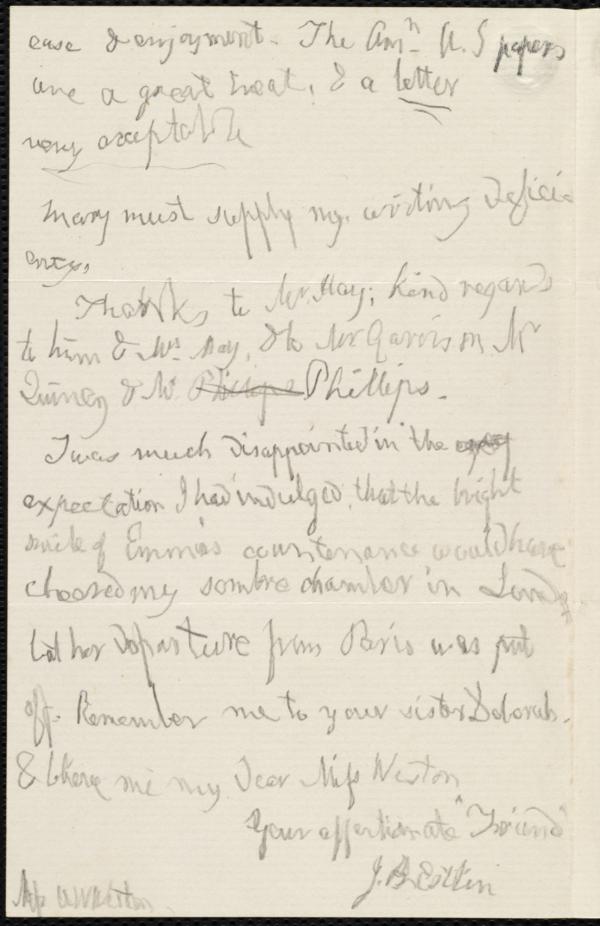 ease & enjoyment. The Am.n A. S papers
are a great treat, & a letter
very acceptable
Mary must supply my writing defici-
ency.
Thanks to Mr. May; kind regards
to him & Mrs May, & to Mr Garrison Mr
Quincy & Mr. Phillips Phillips.
I was much disappointed in the
expectation I had indulged, that the bright
smile of Emma's countenance would have
cheered my sombre chamber in London
but her departure from Paris was put
off. Remember me to your sister Deborah.
& bheve me my dear Miss Weston
Your affectionate Friend
J. B. Estlin
Miss A W Weston